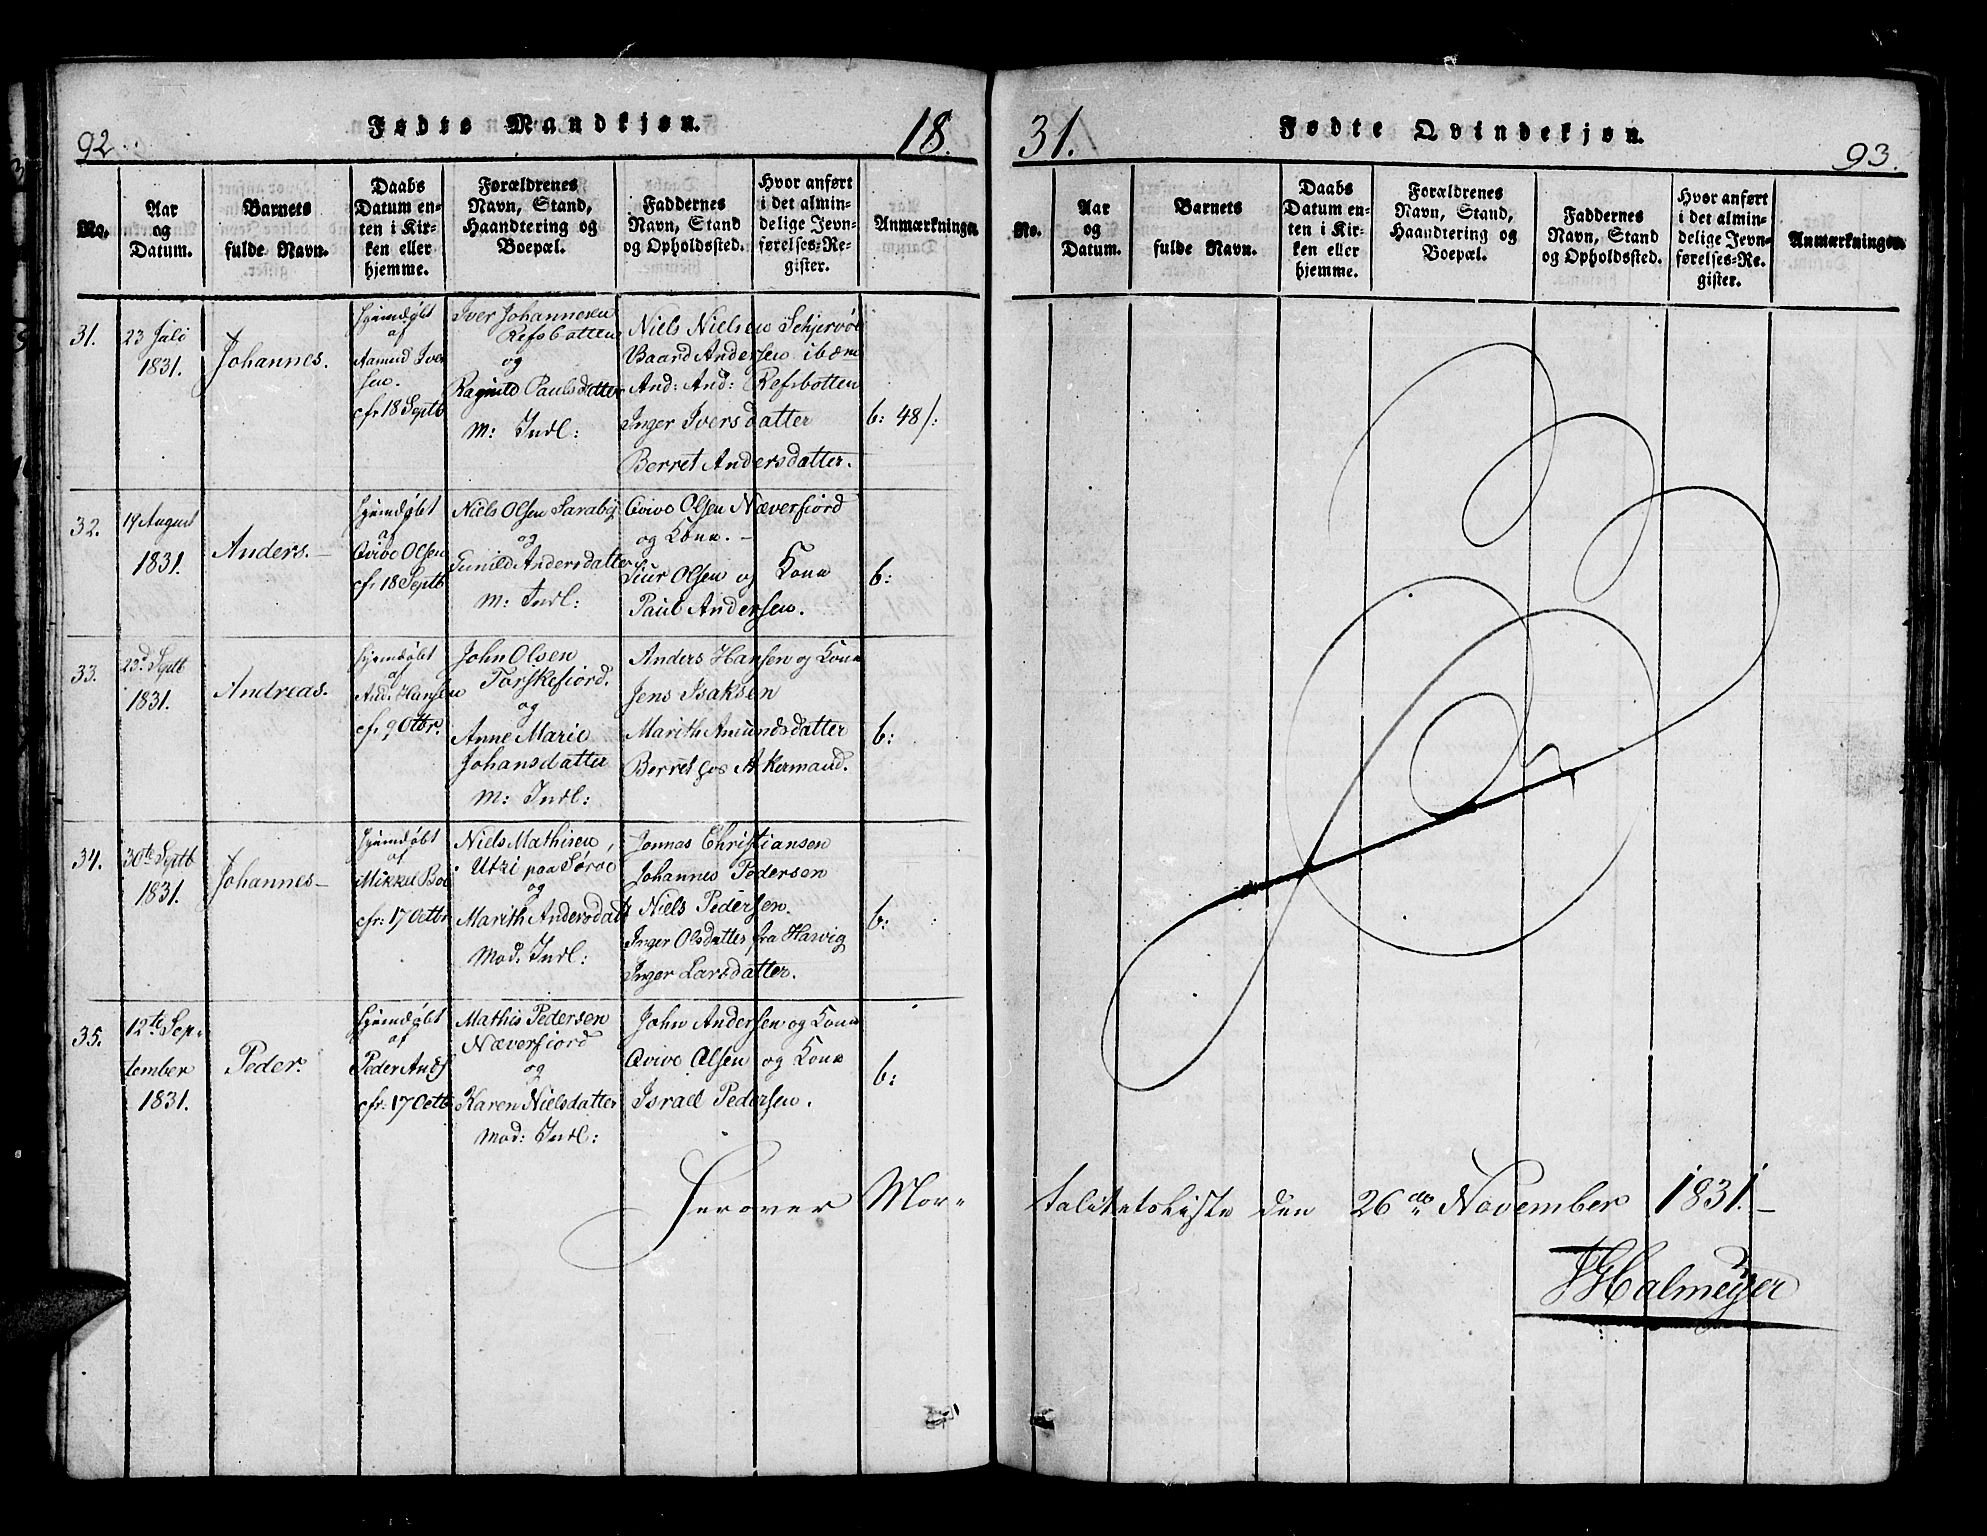 92.
Fødte Mandkjøn.
18.
No.
Aar
og
Datum.
Barnets
fulde Navn.
Daabs
Datum en-
ten i Kir-
ken eller
hjemme.
Forældrenes
Navn, Stand,
Haandtering og
Boepæl.
Faddernes
Navn, Stand
og Opholdssted.
Hvor anført
i det almin-
delige Jevn-
førelses-Re-
gister.
Anmærkninger.
31.
23 Juli
1831.
Johannes.
Hjemdøbt
af
Aamund Iver
sen.
cfr 18 Septb
Iver Johannesen
Refsbotten
og
Ragnild Paulsdatter
M: Indl:
Niels Nielsen Schjervøe
Baard Andersen ibm
And: And: Refsbotten
Inger Iversdatter
Berret Andersdatter.
b: 48/:
32.
19 August
1831.
Anders.
Hjemdøbt
af
Qvive Olsen
cfr 18 Septb
Niels Olsen Saraby
og
Gunild Andersdatter
M: Indl:
Qvive Olsen Næverfiord
og Kone.
Siur Olsen og Kone
Paul Andersen.
b:
33.
23d Septb
1831.
Andreas.
Hjemdøbt
af
And. Hansen
cfr 9 Otbr.
John Olsen
Torskefiord.
og
Anne Marie
Johansdatter
M: Indl:
Anders Hansen og Kone
Jens Isaksen
Marith Amundsdatter
Berret hos Akermand.
b:
34.
30te Septb
1831.
Johannes
Hjemdøbt
af
Mikkel Boe
cfr: 17 Octbr
Niels Mathisen,
Utzi paa Sørøe
og
Marith Andersdatt
Mod. Indl:
Jonnas Christiansen
Johannes Pedersen
Niels Pedersen.
Inger Olsdatter fra Havig
Inger Larsdatter.
b:
35.
12te Sep-
tember
1831.
Peder.
Hjemdøbt
af
Peder Ands
cfr: 17 Octb
Mathis Pedersen
Næverfiord
og
Karen Nielsdatter
Mod: Indl:
John Andersen og Kone
Qvive Olsen og Kone
Israel Pedersen.
b:
Herover Mor-
31.
Fødte Qvindekjøn.
93.
No.
Aar
og
Datum.
Barnets
fulde Navn.
Daabs
Datum en-
ten i Kir-
ken eller
hjemme.
Forældrenes
Navn, Stand,
Haandtering og
Boepæl.
Faddernes
Navn, Stand
og Opholdssted.
Hvor anført
i det almin-
delige Jevn-
førelses-Re-
gister.
Anmærkninger.
talitetsliste den 26de November 1831.
Halmeyer